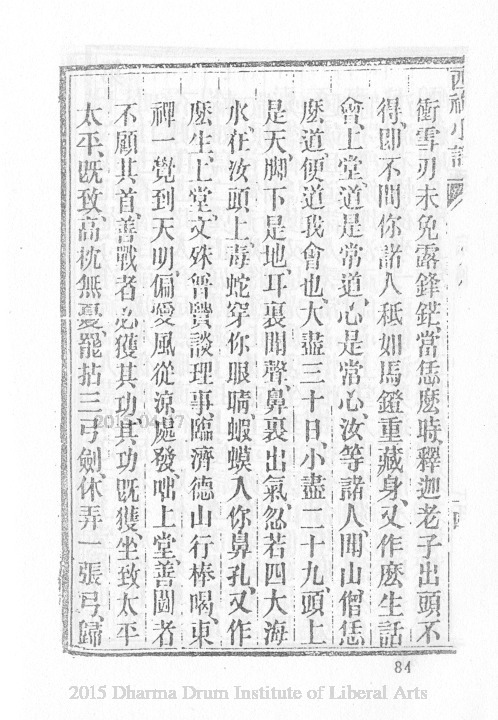 西禪小記
衝雪刃未免露鋒鋩當恁麼時釋迦老子出頭不
得即不問你諸人秖如馬鐙重藏身又作麼生話
會上堂道是常道心是常心汝等諸人聞山僧恁
麼道便道我會也大盡三十日小盡二十九頭上
是天脚下是地耳裏聞聲鼻裏出氣忽若四大海
水在汝頭上毒蛇穿你眼睛蝦蟆入你鼻孔又作
麼生上堂文殊普賢談理事臨濟德山行棒喝東
禪一覺到天明偏愛風從涼處發咄上堂善鬪者
不顧其首善戰者必獲其功其功既獲坐致太平
太平既致高枕無憂罷拈三弓劍休弄一張弓歸
84
2015 Dharma Drum Institute of Liberal Arts